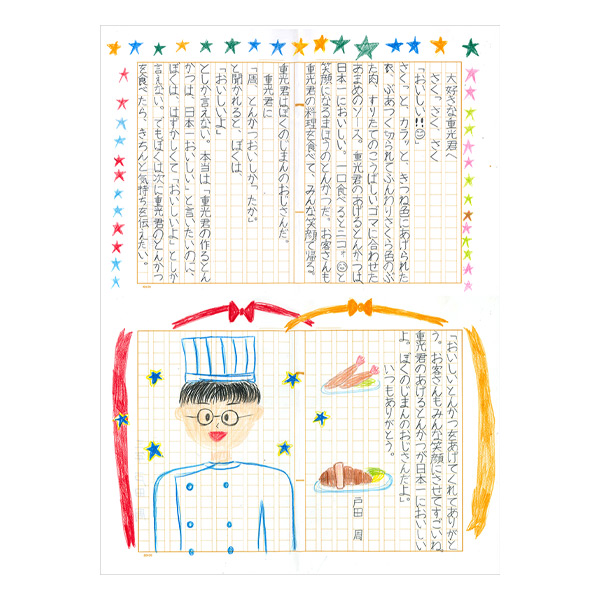 大好きな重光君へ
さくっ、さく、さく
「おいしい!!」
さくっと、カラッと、きつね色にあげられた
衣、ぶあつく切られてふんわりさくら色のぶ
た肉、すりたてのこうばしいゴマに合わせた
あまめのソース。重光君のあげるとんかつは、
日本一においしい。一口食べるとニコォと
笑顔になるまほうのとんかつだ。お客さんも
重光君の料理を食べて、みんな笑顔で帰る。
重光君はぼくのじまんのおじさんだ。
重光君に
「周、とんかつおいしかったか。」
と聞かれると、ぼくは、
「おいしいよ」
としか言えない。本当は「重光君の作るとん
かつは、日本一おいしい」と言いたいのに、
ぼくは、はずかしくて「おいしいよ」としか
言えない。でもぼくは次に重光君のとんかつ
を食べたら、きちんと気持ちを伝えたい。
「おいしいとんかつをあげてくれてありがと
う。お客さんもみんな笑顔にさせてすごいね。
重光君のあげるとんかつが日本一においしい
よ。ぼくのじまんのおじさんだよ。」
いつもありがとう。
戸田 周